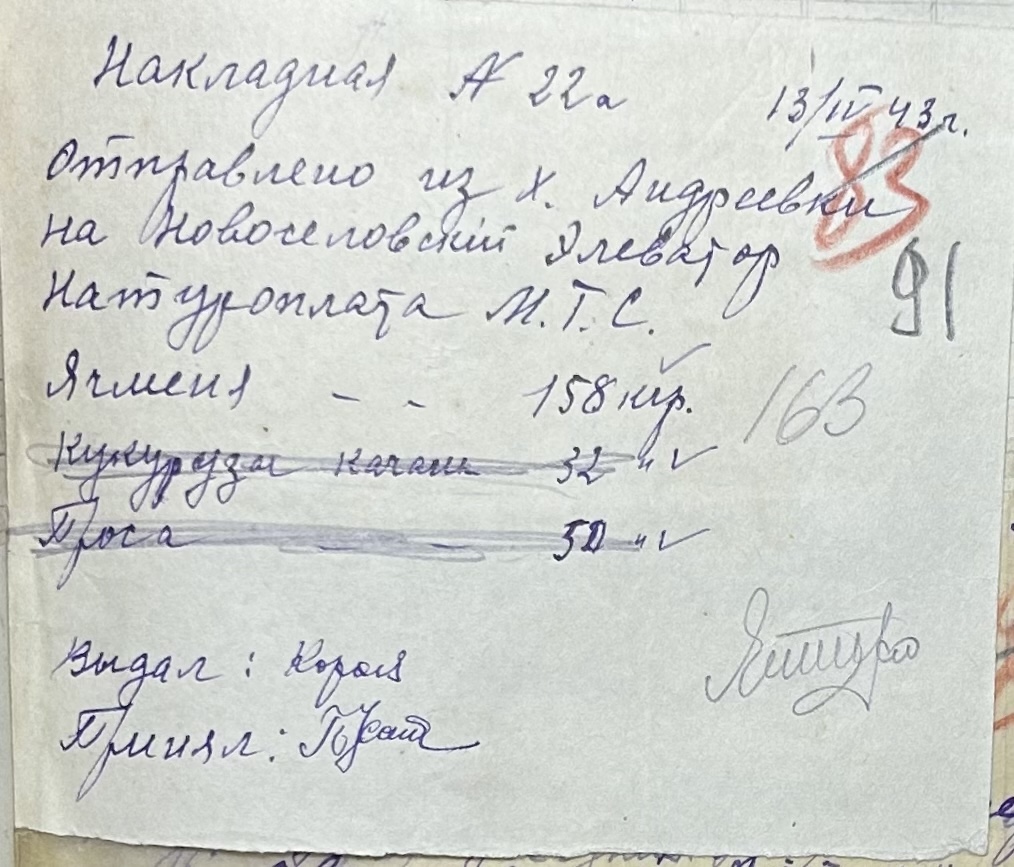 Накладная № 22а
13/IV 43г.
83
Отправлено из х. Андреевки
на Новоселовский Элеватор
91
Натуроплата М.Т.С.
Ячменя - - 158 кгр.
163
Кукурузы качан 32 "
Проса - - 50 "
Выдал: Короля
Принял: